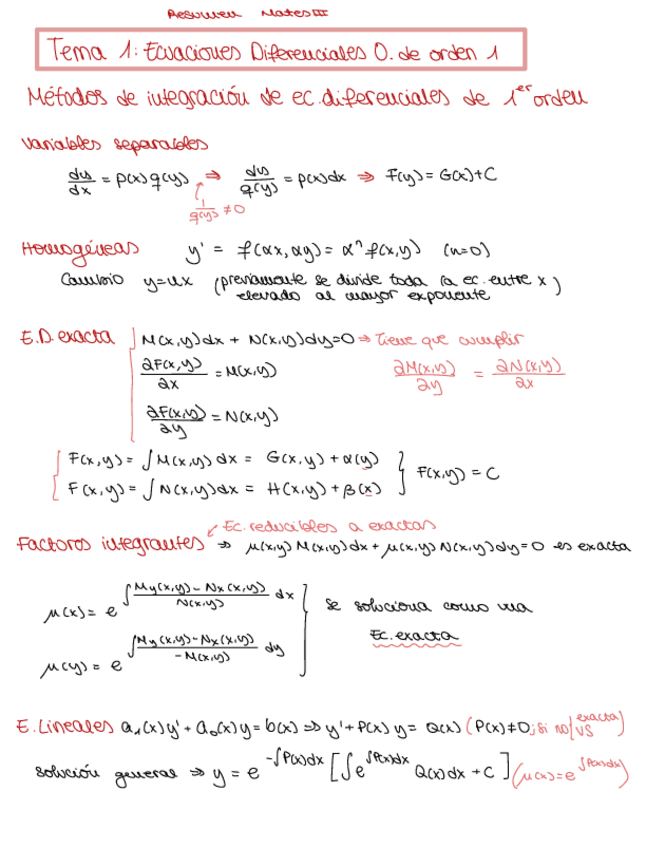 Resumen Mates III
Tema 1: Ecuaciones Diferenciales O. de orden 1
Métodos de integración de ec. diferenciales de 1er orden
Variables separables
dy/dx = p(x)q(y) ⇒ dy/q(y) = p(x)dx ⇒ F(y) = G(x)+C
1/q(y) ≠ 0
Homogéneas y' = f(αx, αy) = αⁿ f(x,y) (n=0)
Cambio y=ux (previamente se divide toda la ec. entre x
elevado al mayor exponente)
E.D. exacta M(x,y)dx + N(x,y)dy=0 ⇒ Tiene que cumplir
∂F(x,y)/∂x = M(x,y) ∂M(x,y)/∂y = ∂N(x,y)/∂x
∂F(x,y)/∂y = N(x,y)
F(x,y) = ∫M(x,y)dx = G(x,y) + α(y)
F(x,y) = ∫N(x,y)dx = H(x,y) + β(x) } F(x,y) = C
Ec. reducibles a exactas
Factores integrantes ⇒ μ(x,y)M(x,y)dx + μ(x,y)N(x,y)dy=0 es exacta
μ(x) = e^∫ (My(x,y) - Nx(x,y))/N(x,y) dx
se soluciona como una
Ec. exacta
μ(y) = e^∫ (My(x,y) - Nx(x,y))/-M(x,y) dy
E. Lineales a₁(x)y' + a₀(x)y = b(x) ⇒ y' + P(x)y = Q(x) (P(x)≠0; si no exacta/VS)
solución general ⇒ y = e^-∫P(x)dx [∫e^∫P(x)dx Q(x)dx + C] (μ(x)=e^∫P(x)dx)